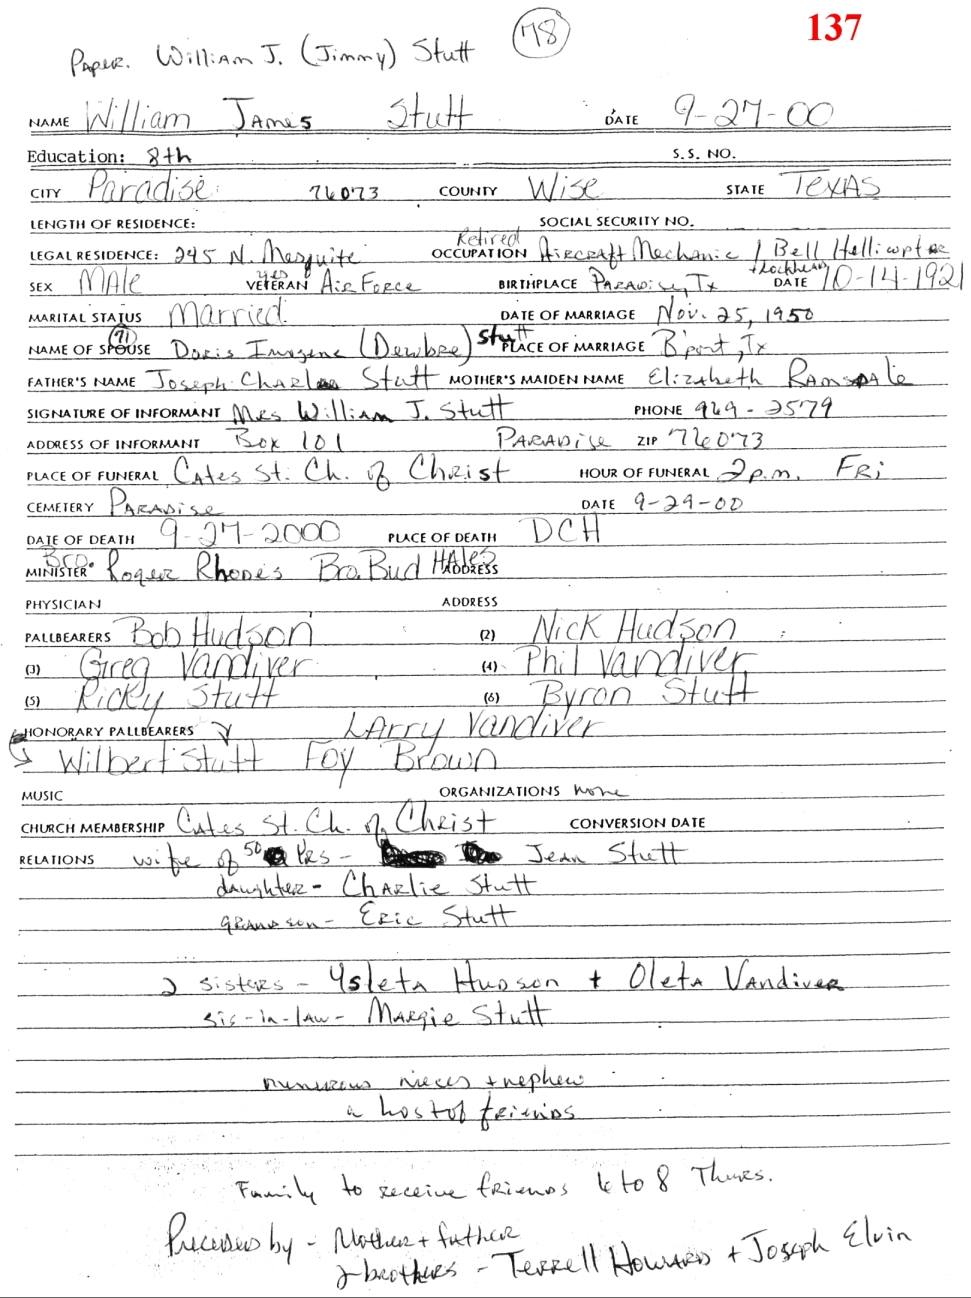 137
78
Paper. William J. (Jimmy) Stutt
NAME William James Stutt DATE 9-27-00
Education: 8th S.S. NO.
CITY Paradise 76073 COUNTY Wise STATE TEXAS
LENGTH OF RESIDENCE: SOCIAL SECURITY NO.
LEGAL RESIDENCE: 245 N. Mesquite OCCUPATION Retired Aircraft Mechanic / Bell Hellicopter + Lockheed
SEX MAle VETERAN yes Air Force BIRTHPLACE Paradise, Tx DATE 10-14-1921
MARITAL STATUS Married DATE OF MARRIAGE Nov. 25, 1950
NAME OF SPOUSE (71) Doris Imogene (Dewbre) Stutt PLACE OF MARRIAGE B'port, Tx
FATHER'S NAME Joseph Charles Stutt MOTHER'S MAIDEN NAME Elizabeth Ramsdale
SIGNATURE OF INFORMANT Mrs William J. Stutt PHONE 969-2579
ADDRESS OF INFORMANT Box 101 PARADise ZIP 76073
PLACE OF FUNERAL Cates St. Ch. of Christ HOUR OF FUNERAL 2 p.m. FRi
CEMETERY PARADise DATE 9-29-00
DATE OF DEATH 9-27-2000 PLACE OF DEATH DCH
MINISTER Bro. Roger Rhodes Bro. Bud Hales ADDRESS
PHYSICIAN ADDRESS
PALLBEARERS Bob Hudson (2) Nick Hudson
(3) Greg Vandiver (4) Phil Vandiver
(5) Ricky Stutt (6) Byron Stutt
HONORARY PALLBEARERS LArry Vandiver
Wilbert Stutt Foy Brown
MUSIC ORGANIZATIONS none
CHURCH MEMBERSHIP Cates St. Ch. of Christ CONVERSION DATE
RELATIONS wife of 50 YRS - Jean Stutt
daughter - Charlie Stutt
grandson - Eric Stutt
2 sisters - Ysleta Hudson + Oleta Vandiver
sis-in-law - Margie Stutt
numerous nieces + nephew
a host of friends
Family to receive friends 6 to 8 Thurs.
Preceded by - Mother + father
2 brothers - Terrell Howard + Joseph Elvin